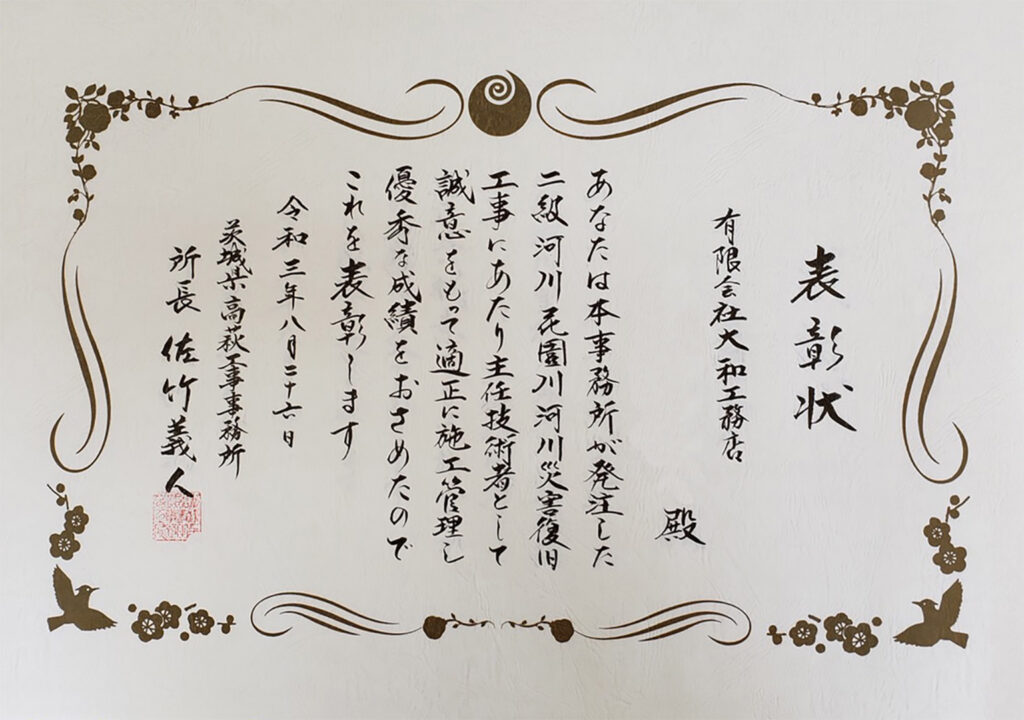 表彰状
有限会社大和工務店
殿
あなたは本事務所が発注した
二級河川花園川河川災害復旧
工事にあたり主任技術者として
誠意をもって適正に施工管理し
優秀な成績をおさめたので
これを表彰します
令和三年八月二十六日
茨城県高萩工事事務所
所長 佐竹義人